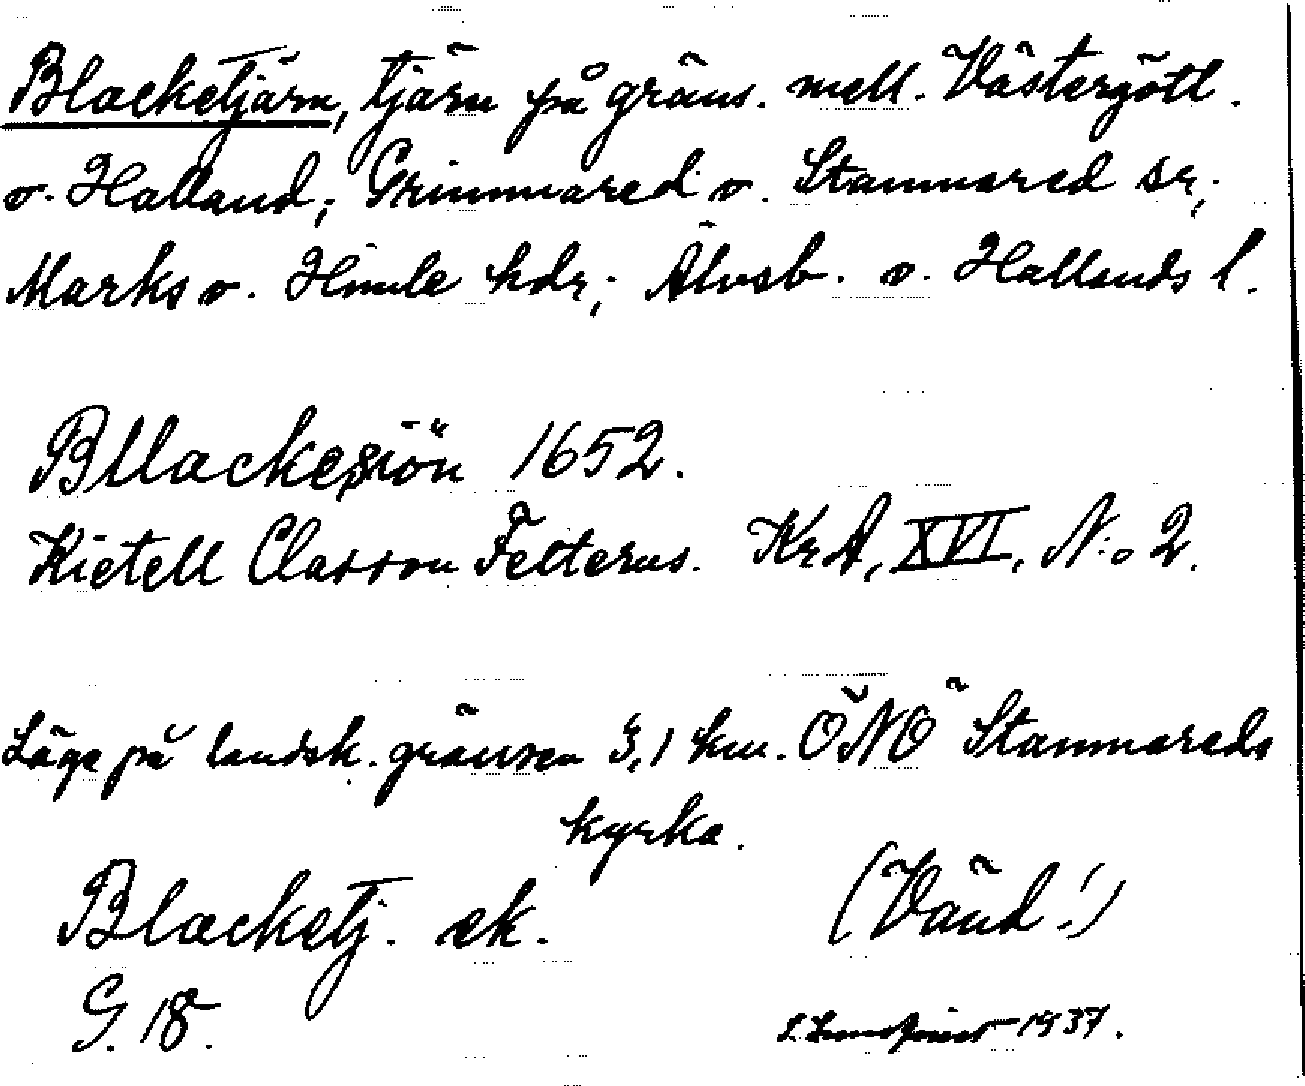 Blacketjärn, tjärn på gräns. mell. Västergötl.
o. Halland; Grimmared o. Stamnared sr;
Marks o. Himle hdr; Älvsb. o. Hallands l.
Bllackesiön 1652.
Kietell Classon Felterus. KrA, XVI, N:o 2.
Läge på landsk. gränsen 3,1 km. ÖNÖ Stamnareds
kyrka.
Blacketj. ek.
(Vänd!)
G. 18.
1937.